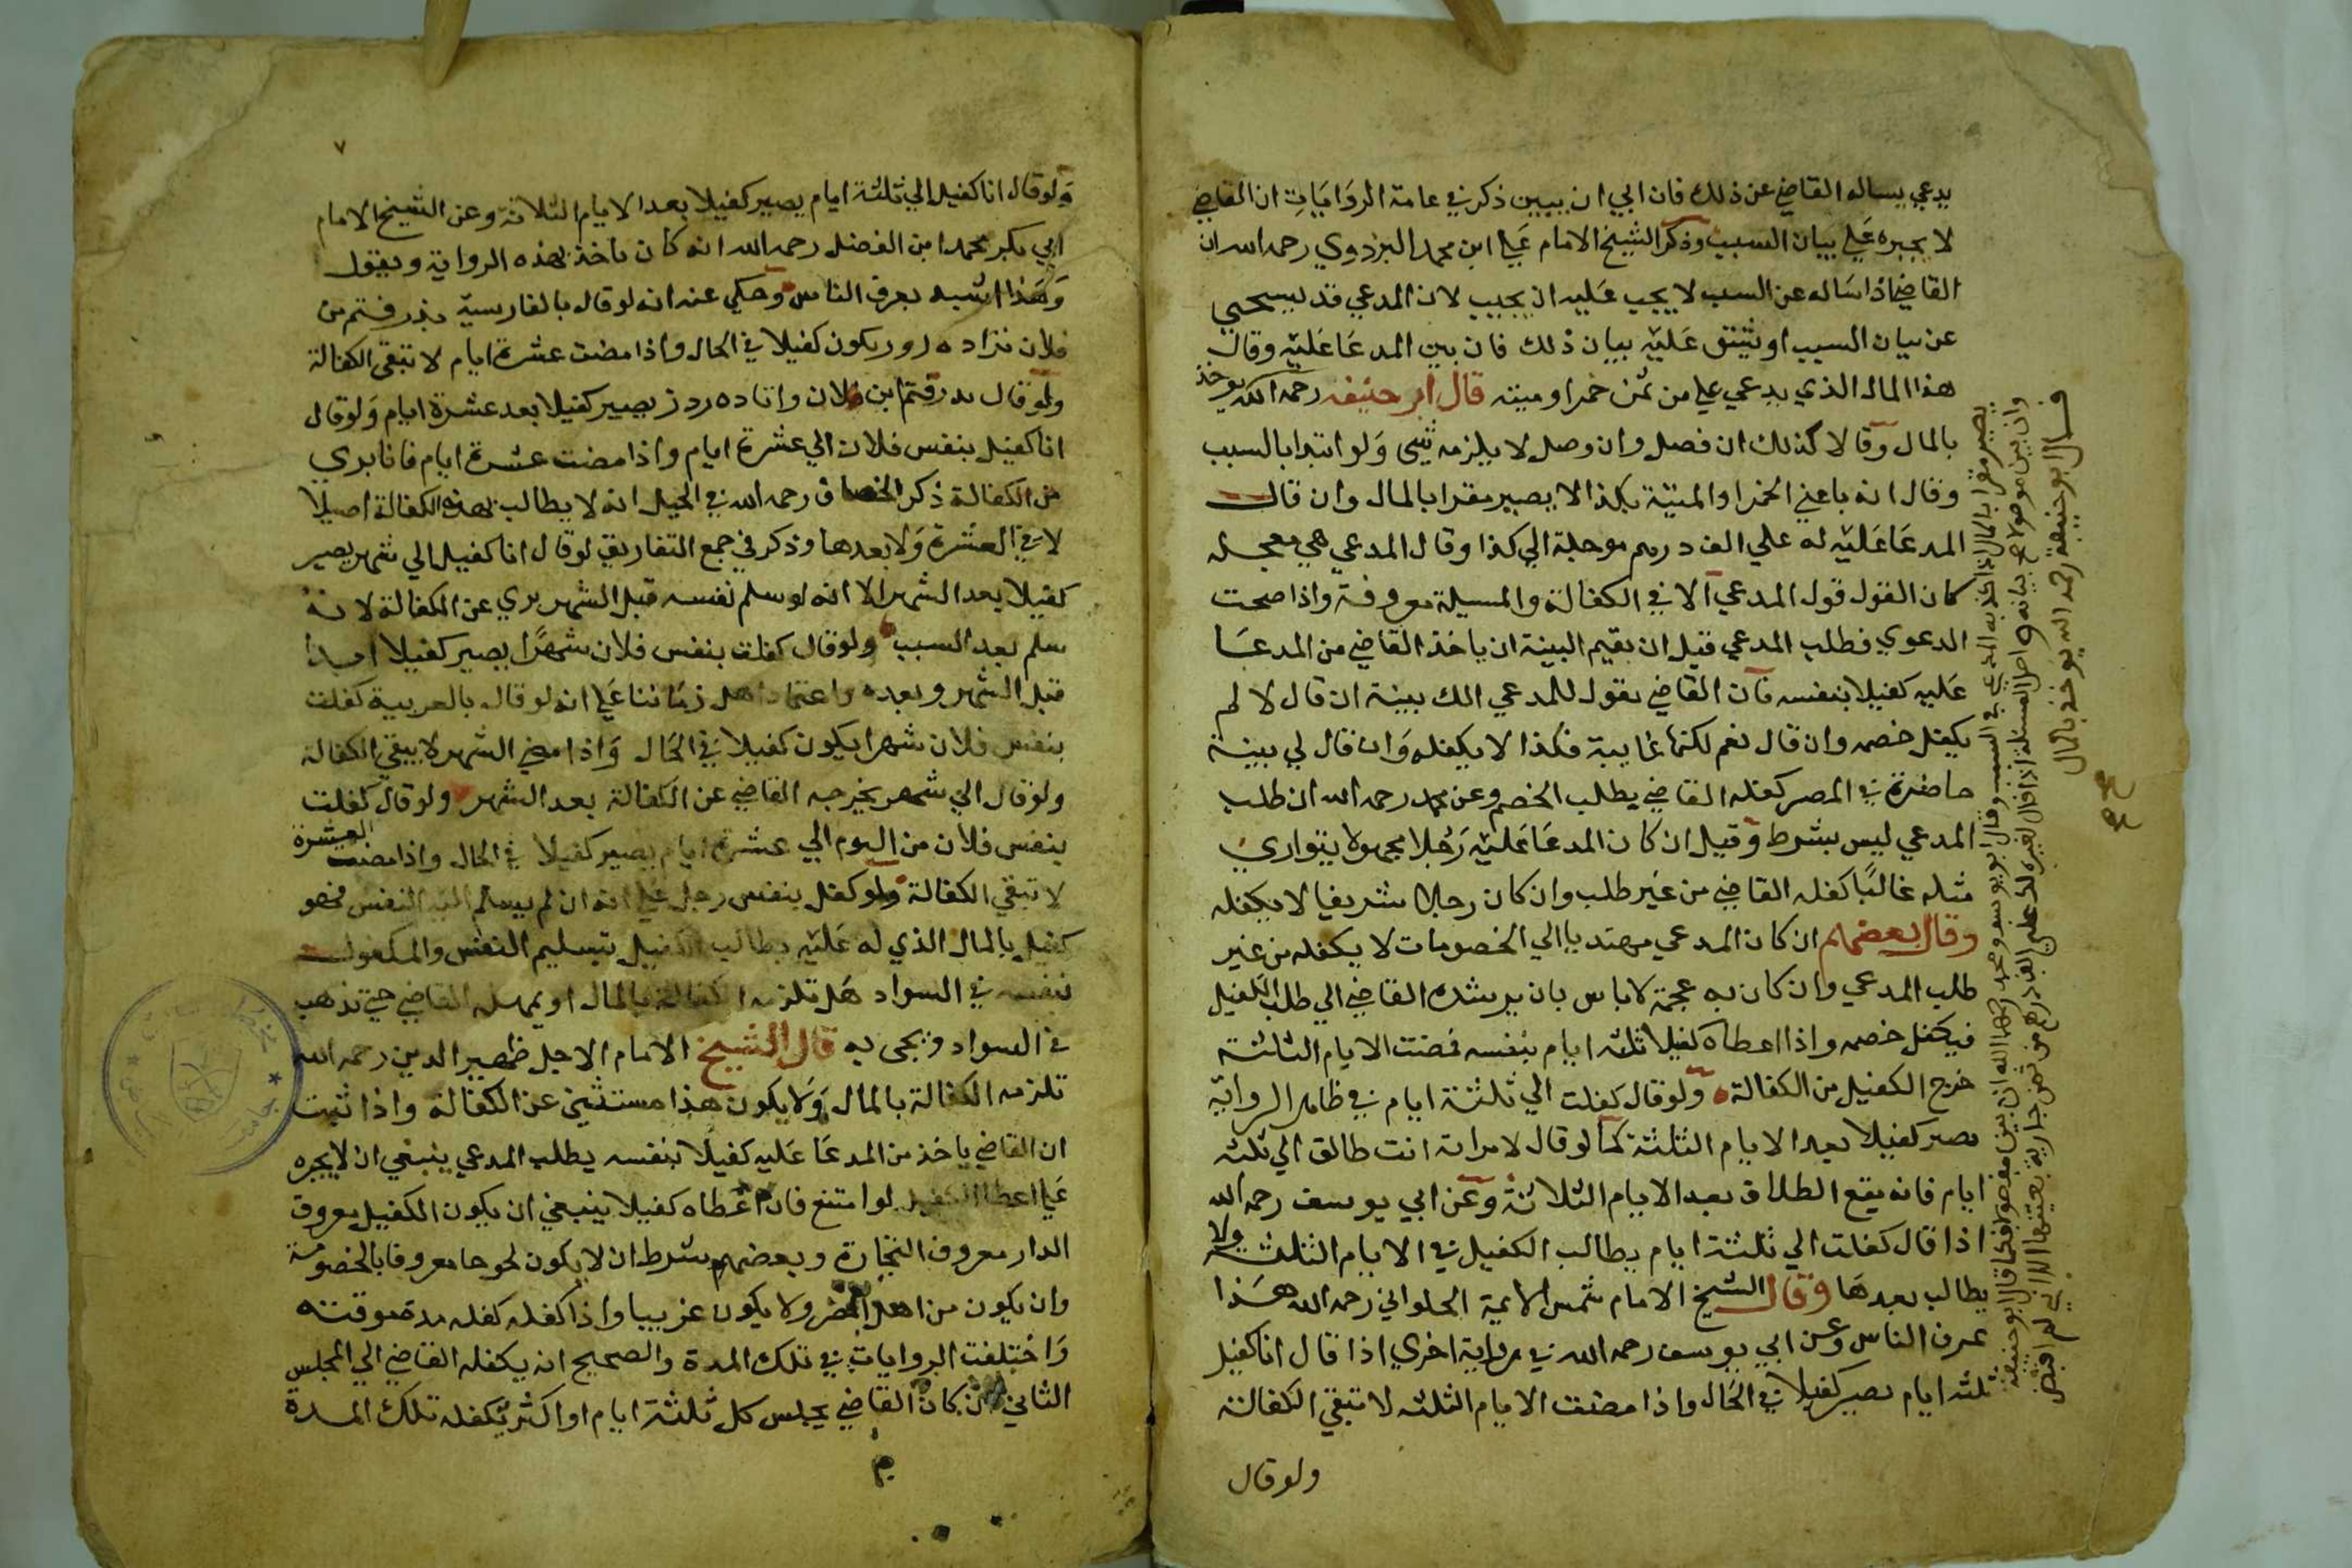 يدعي يساله القاضي عن ذلك فان ابي ان يبين ذكر في عامة الروايات ان القاضي
لا يجبره علي بيان السبب وذكر الشيخ الامام علي ابن محمد البزدوي رحمه الله ان
القاضي اذا ساله عن السبب لا يجب عليه ان يجيب لان المدعي قد يستحيي
عن بيان السبب او يشق عليه بيان ذلك فان بين المدعا عليه وقال
هذا المال الذي يدعي علي من ثمن خمر او ميتة قال ابو حنيفه رحمه الله يوخذ
بالمال وقالا كذلك ان فصل وان وصل لا يلزمه شي ولو ابتدا بالسبب
وقال انه باعني الخمر او الميتة بكذا لا يصير مقرا بالمال وان قال
المدعا عليه له علي الف درهم موجلة الي كذا وقال المدعي هي معجله
كان القول قول المدعي الا في الكفالة والمسيلة معروفة واذا صحت
الدعوي فطلب المدعي قبل ان يقيم البينة ان ياخذ القاضي من المدعا
عليه كفيلا بنفسه فان القاضي يقول للمدعي الك بينة ان قال لا لم
يكفل خصمه وان قال نعم لكنها غايبة فكذا لا يكفله وان قال لي بينة
حاضرة في المصر كفله القاضي يطلب الخصم وعن محمد رحمه الله ان طلب
المدعي ليس بشرط وقيل ان كان المدعا عليه رجلا مجهولا يتواري
مثله غالبا كفله القاضي من غير طلب وان كان رجلا شريفا لا يكفله
وقال بعضهم ان كان المدعي مهتديا الي الخصومات لا يكفله من غير
طلب المدعي وان كان به عجمة لا باس بان يرشده القاضي الي طلب الكفيل
فيكفل خصمه واذا اعطاه كفيلا ثلثه ايام بنفسه فمضت الايام الثالثة
خرج الكفيل من الكفالة ولو قال كفلت الي ثلثة ايام في ظاهر الرواية
يصير كفيلا بعد الايام الثلثة كما لو قال لامراته انت طالق الي ثلثه
ايام فانه يقع الطلاق بعد الايام الثلاثة وعن ابي يوسف رحمه الله
اذا قال كفلت الي ثلثة ايام يطالب الكفيل في الايام الثلثة ولا
يطالب بعدها وقال الشيخ الامام شمس الايمة الحلواني رحمه الله هذا
عرف الناس وعن ابي يوسف رحمه الله في رواية اخري اذا قال انا كفيل
ثلثه ايام يصير كفيلا في الحال واذا مضت الايام الثلثه لا تبقي الكفالة
ولو قال
قال ابو حنيفة رحمه الله يوخذ بالمال
ولو قال انا كفيل الي ثلثة ايام يصير كفيلا بعد الايام الثلاثة وعن الشيخ الامام
ابي بكر محمد ابن الفضل رحمه الله انه كان ياخذ بهذه الرواية ويقول
وهذا اشبه بعرف الناس وحكي عنه انه لو قال بالفارسية پذرفتم من
فلان نزا ده روز يكون كفيلا في الحال واذا مضت عشرة ايام لا تبقي الكفالة
ولو قال پذرفتم ابن فلان را تا ده روز يصير كفيلا بعد عشرة ايام ولو قال
انا كفيل بنفس فلان الي عشرة ايام واذا مضت عشرة ايام فانا بري
من الكفالة ذكر الخصاف رحمه الله في الحيل انه لا يطالب بهذه الكفالة اصيلا
لا في العشرة ولا بعدها وذكر في جمع التفاريق لو قال انا كفيل الي شهر يصير
كفيلا بعد الشهر الا انه لو سلم نفسه قبل الشهر بري عن الكفالة لانه
سلم بعد السبب ولو قال كفلت بنفس فلان شهرا يصير كفيلا ابدا
قبل الشهر وبعده واعتماد اهل زماننا علي انه لو قال بالعربية كفلت
بنفس فلان شهرا يكون كفيلا في الحال واذا مضي الشهر لا يبقي الكفالة
ولو قال الي شهر يخرجه القاضي عن الكفالة بعد الشهر ولو قال كفلت
بنفس فلان من اليوم الي عشرة ايام يصير كفيلا في الحال واذا مضت العشرة
لا تبقي الكفالة ولو كفل بنفس رجل علي انه ان لم يسلم اليه النفس فهو
كفيل بالمال الذي له عليه يطالب الكفيل بتسليم النفس والمكفول
بنفسه في السواد هل تلزمه الكفالة بالمال او يمهله القاضي حتي تذهب
في السواد ويجي به قال الشيخ الامام الاجل ظهير الدين رحمه الله
تلزمه الكفالة بالمال ولا يكون هذا مستثني عن الكفالة واذا ثبت
ان القاضي ياخذ من المدعا عليه كفيلا بنفسه يطلب المدعي ينبغي ان لا يجبره
علي اعطا الكفيل لو امتنع فان اعطاه كفيلا ينبغي ان يكون الكفيل معروف
الدار معروف التجارة وبعضهم شرط ان لا يكون لحوحا معروفا بالخصومة
وان يكون من اهل المصر ولا يكون غريبا واذا كفله كفله مدة موقته
واختلفت الروايات في تلك المدة والصحيح انه يكفله القاضي الي المجلس
الثاني ان كان القاضي يجلس كل ثلثة ايام او اكثر يكفله تلك المدة